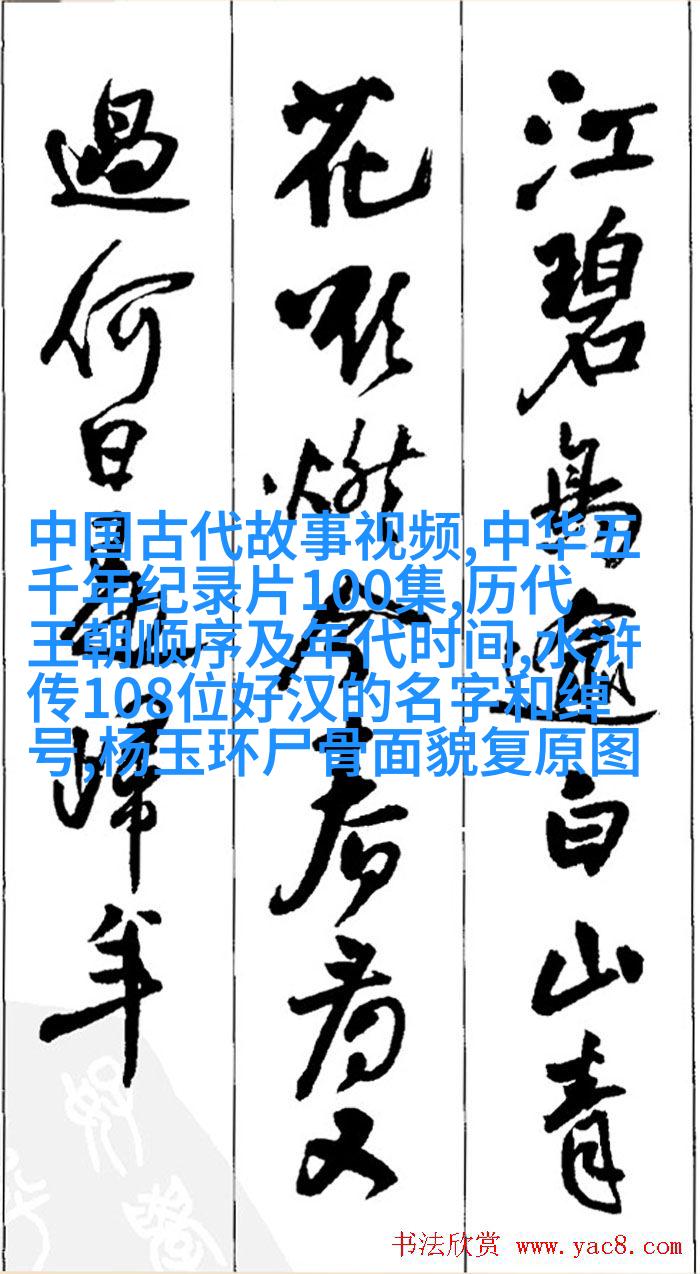 江碧鳥逾白山青
花欲燃今春看又
過何日是歸年
中国古代故事视频,中华五
千年纪录片100集,历代
王朝顺序及年代时间,水浒
传108位好汉的名字和绰
号,杨玉环尸骨面貌复原图
书法欣赏 www.yac8.com